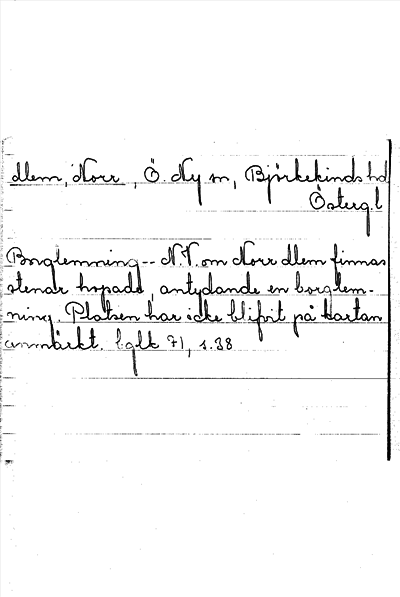 dlem, Norr, Ö. Ny sn, Björkekinds hd
Österg.l
Borglemning -- N.V. om Norr dlem finnas
stenar hopade, antydande en borglem-
ning. Platsen har icke blifvit på kartan
anmärkt. bglk 71, s. 38